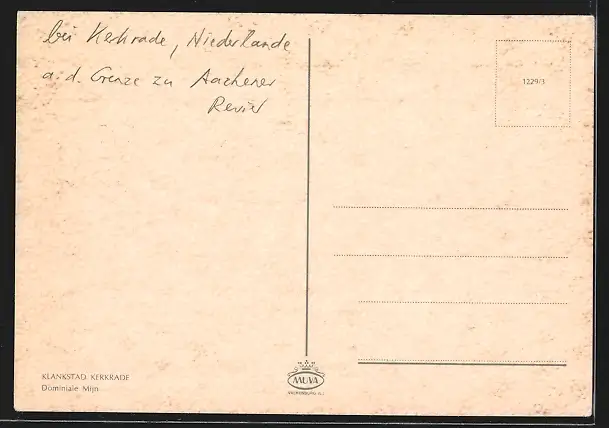 bei Kerkrade, Niederlande
a. d. Grenze zu Aachener
Revier
1229/3
KLANKSTAD KERKRADE
Dominiale Mijn
MUVA
VALKENBURG (L.)